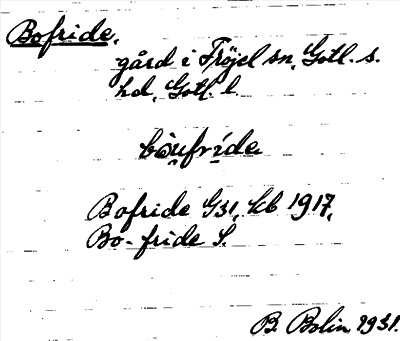 Bofride,
gård i Fröjel sn, Gotl. s.
hd, Gotl. l.
bòufríde
Bofride G31, kb 1917,
Bo-fride S.
B. Bolin 1931.